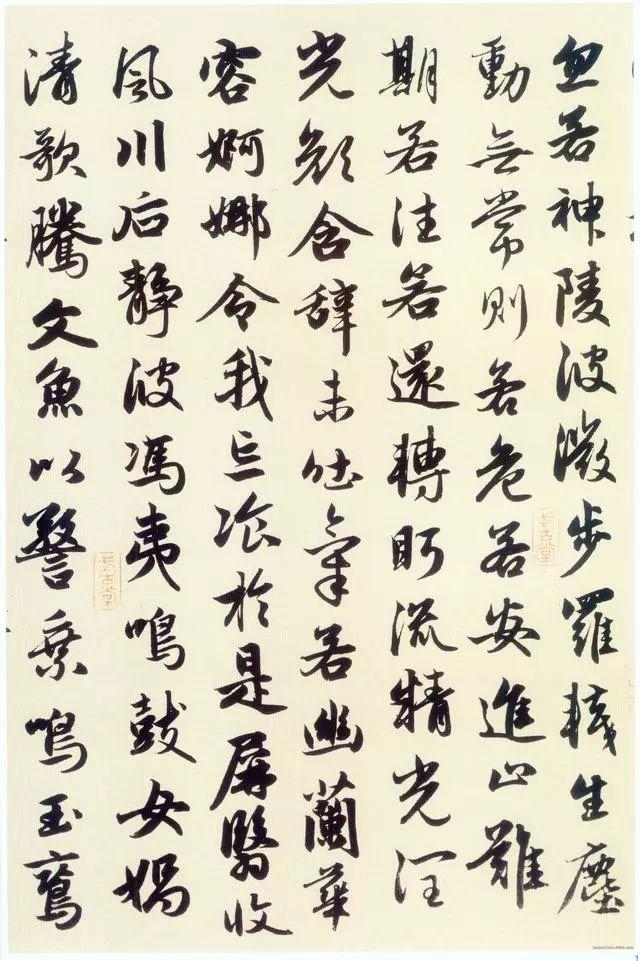 忽若神陵波微步羅韈生塵
動無常則若危若安進止難
期若往若還轉眄流精光潤
光顏含辭未吐氣若幽蘭華
容婀娜令我忘飡於是屏翳收
風川后靜波馮夷鳴鼓女媧
清歌騰文魚以警乗鳴玉鸞